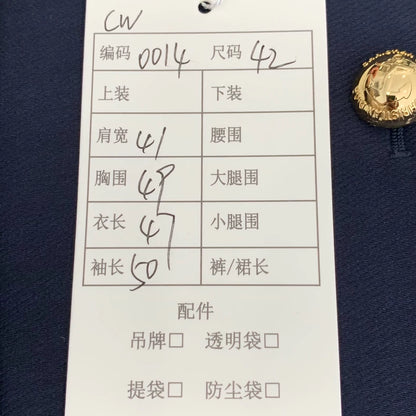 CW
编码 0014 尺码 42
上装 下装
肩宽 41 腰围
胸围 49 大腿围
衣长 47 小腿围
袖长 50 裤/裙长
配件
吊牌□ 透明袋□
提袋□ 防尘袋□